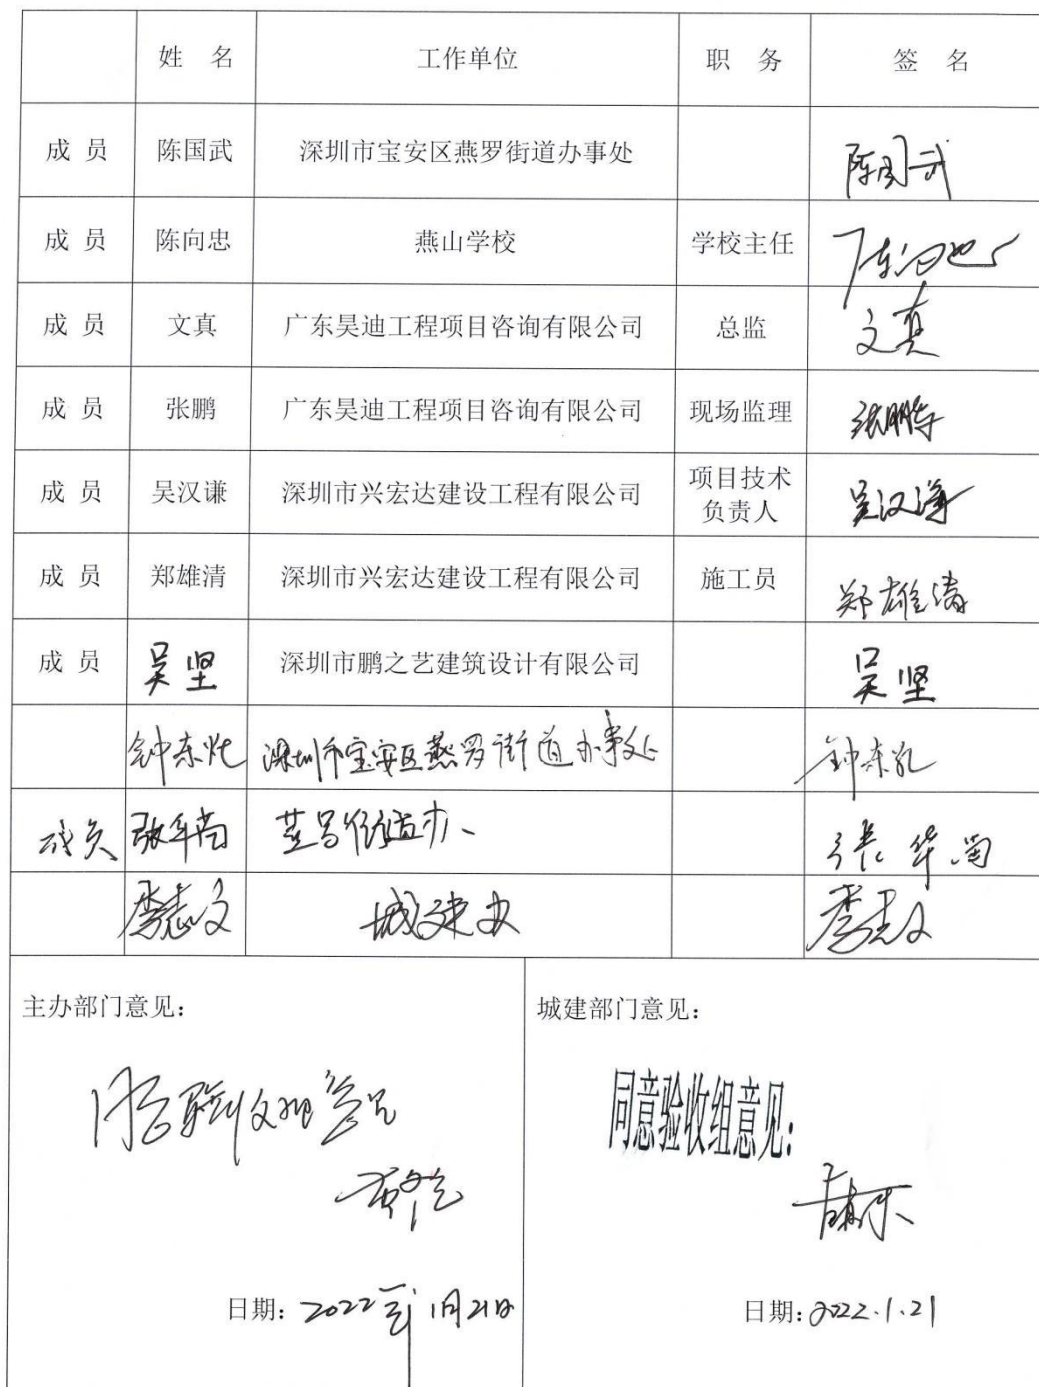 姓 名 工作单位 职 务 签 名
成 员 陈国武 深圳市宝安区燕罗街道办事处 陈国武
成 员 陈向忠 燕山学校 学校主任 陈向忠
成 员 文真 广东昊迪工程项目咨询有限公司 总监 文真
成 员 张鹏 广东昊迪工程项目咨询有限公司 现场监理
成 员 吴汉谦 深圳市兴宏达建设工程有限公司 项目技术
负责人 吴汉谦
成 员 郑雄清 深圳市兴宏达建设工程有限公司 施工员 郑雄清
成 员 吴坚 深圳市鹏之艺建筑设计有限公司 吴坚
深圳市宝安区燕罗街道办事处
成员 燕罗街道办
李志文 城建办 李志文
主办部门意见:
同意验收组意见
日期: 2022年1月21日
城建部门意见:
同意验收组意见:
日期: 2022.1.21